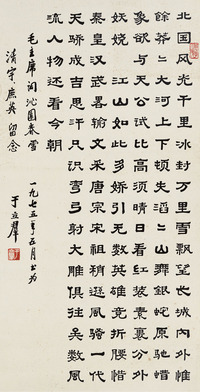 北国风光千里冰封万里雪飘望长城内外惟
餘莽〻大河上下顿失滔〻山舞銀蛇原驰蜡
象欲与天公试比高须晴日看红装素裹分外
妖娆 江山如此多娇引无数英雄竞折腰惜
秦皇汉武略输文采唐宗宋祖稍逊风骚一代
天骄成吉思汗只识弯弓射大雕俱往矣数风
流人物还看今朝
毛主席词沁园春雪
一九七五年五月书为
留念
于立群